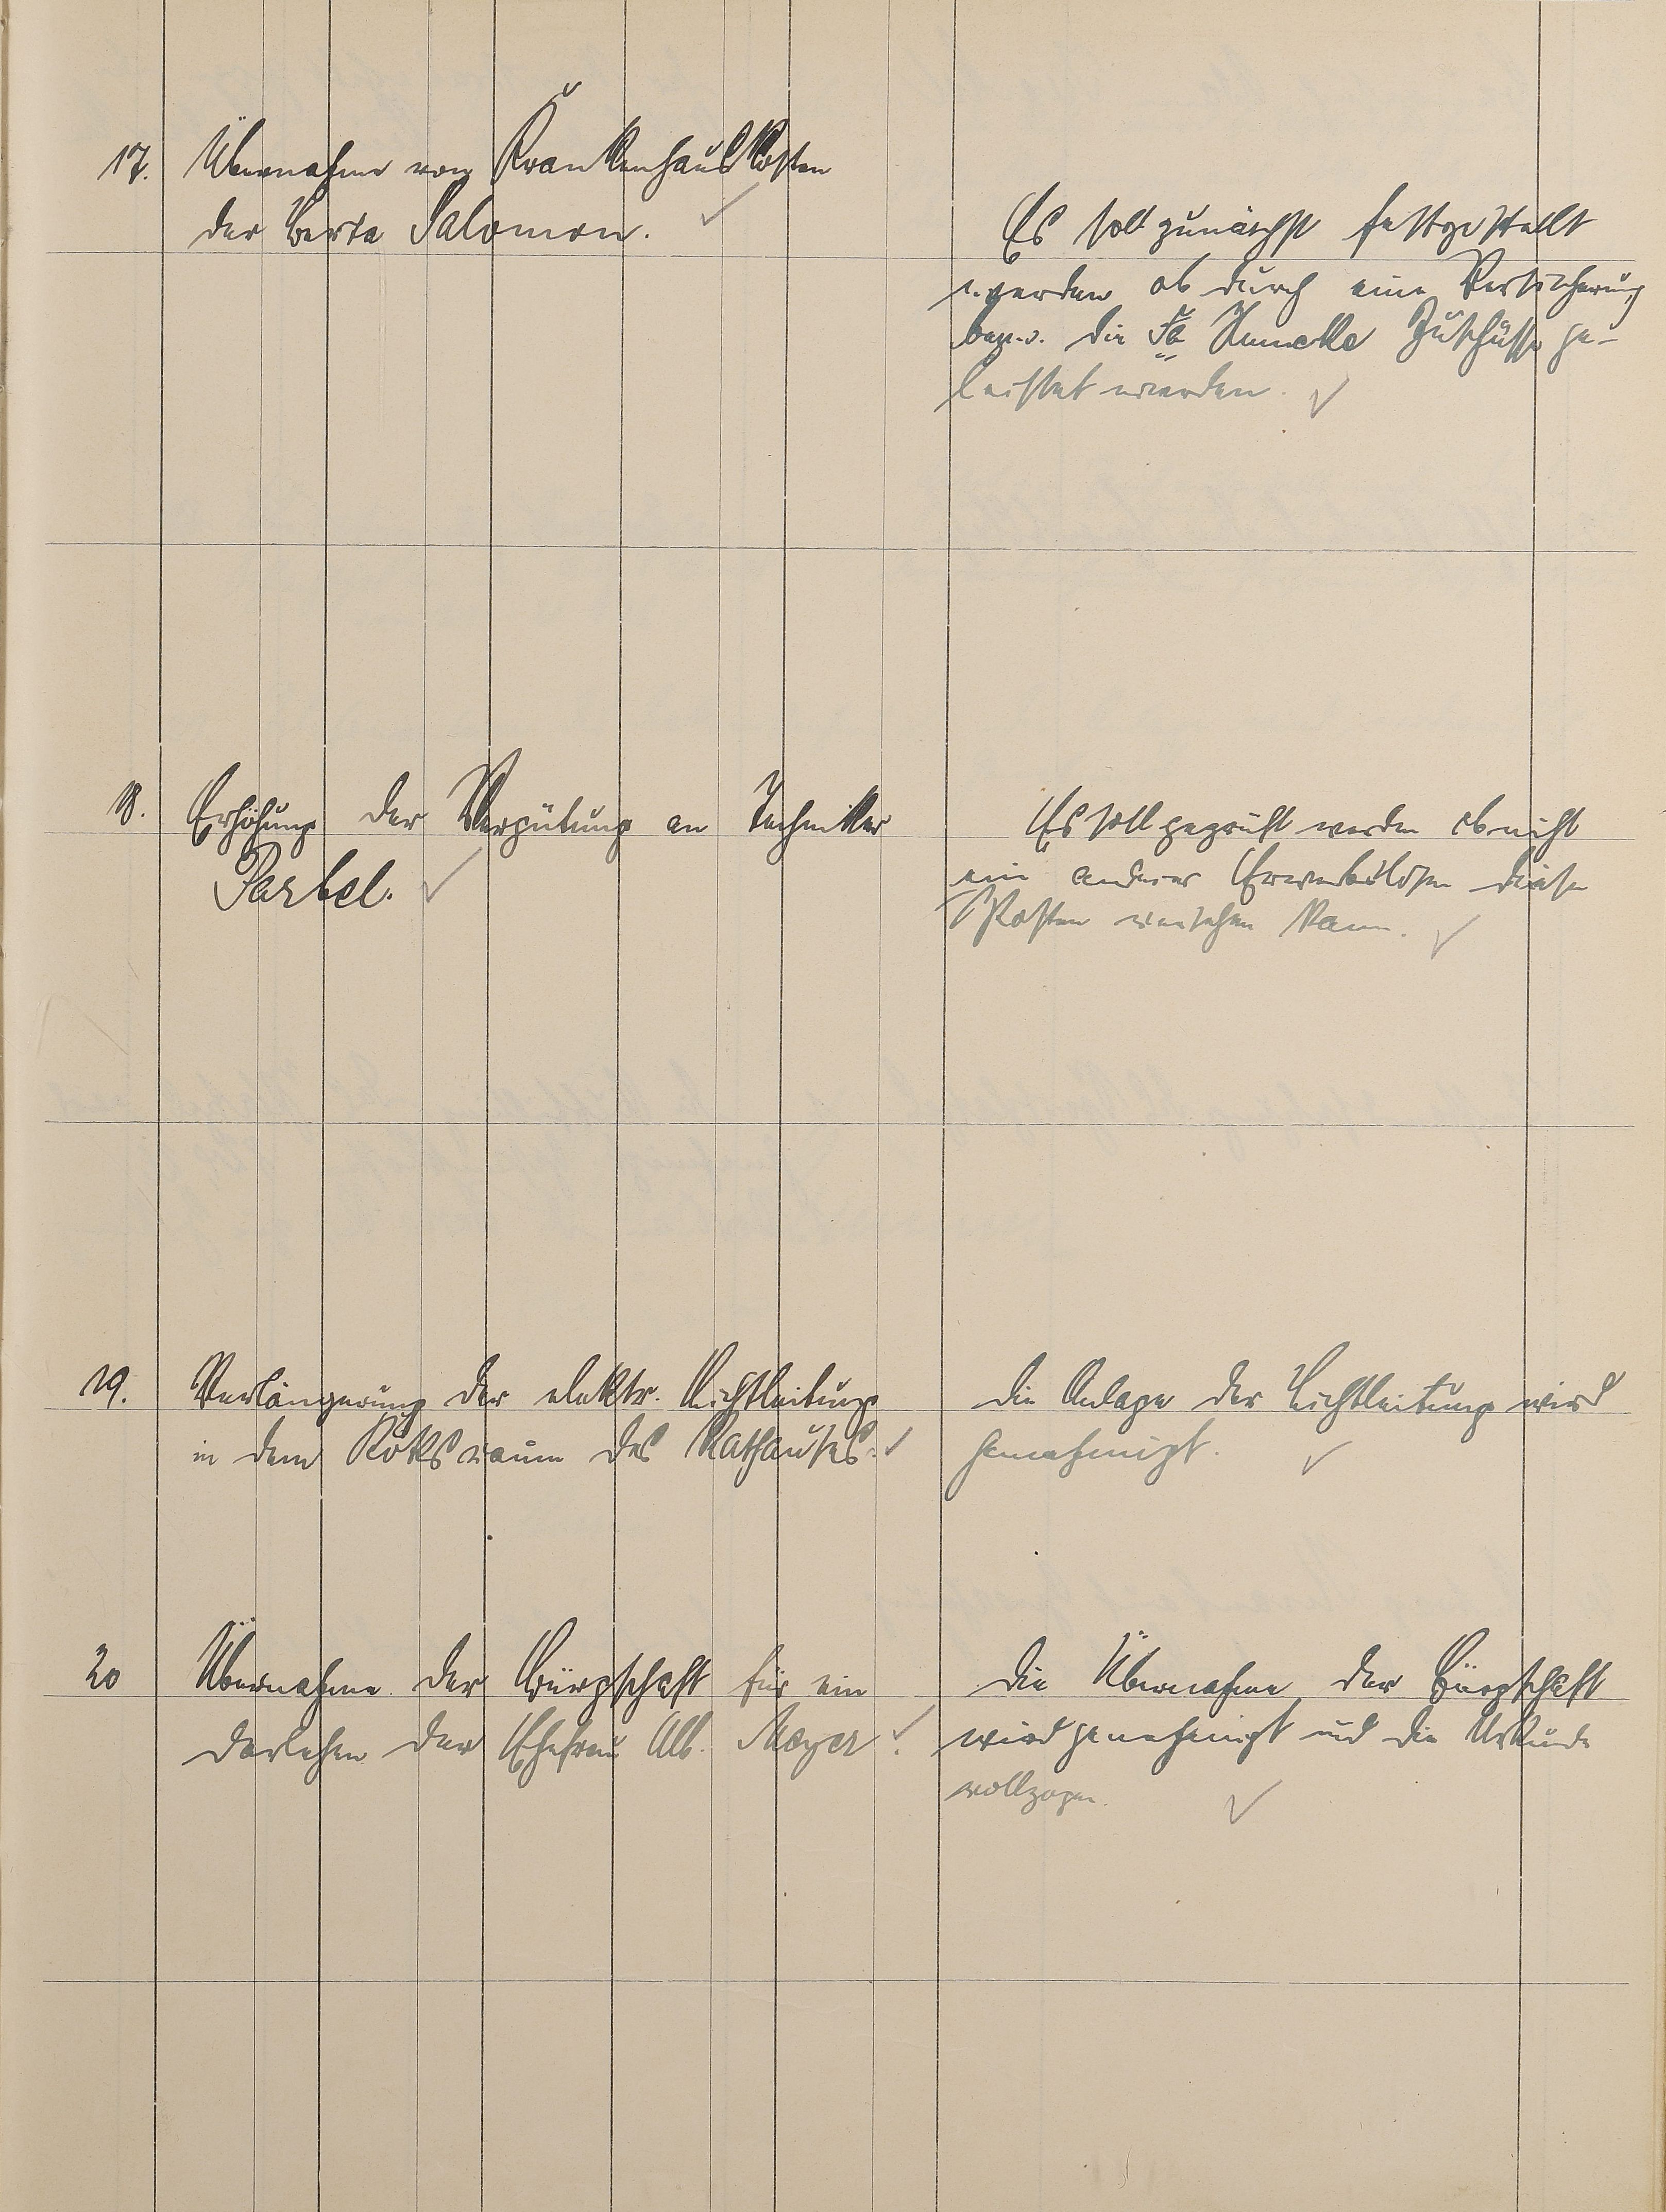 17. Übernahme von Krankenhauskosten
der Berta Salomon.
Es soll zunächst festgestellt
werden ob durch eine Versicherung
bezw. die Fa Zuschüsse ge-
leistet werden.
18. Erhöhung der Vergütung an Techniker
Parbel.
Es soll geprüft werden ob nicht
ein anderer Erwerbslosen diesen
Posten versehen kann.
19. Verlängerung der elektr. Lichtleitung
in dem des Rathauses.
Die Anlage der Lichtleitung wird
genehmigt.
20 Übernahme der Bürgschaft für ein
Darlehen der Ehefrau Alb. Meyer.
Die Übernahme der Bürgschaft
wird genehmigt und die Urkunde
vollzogen.